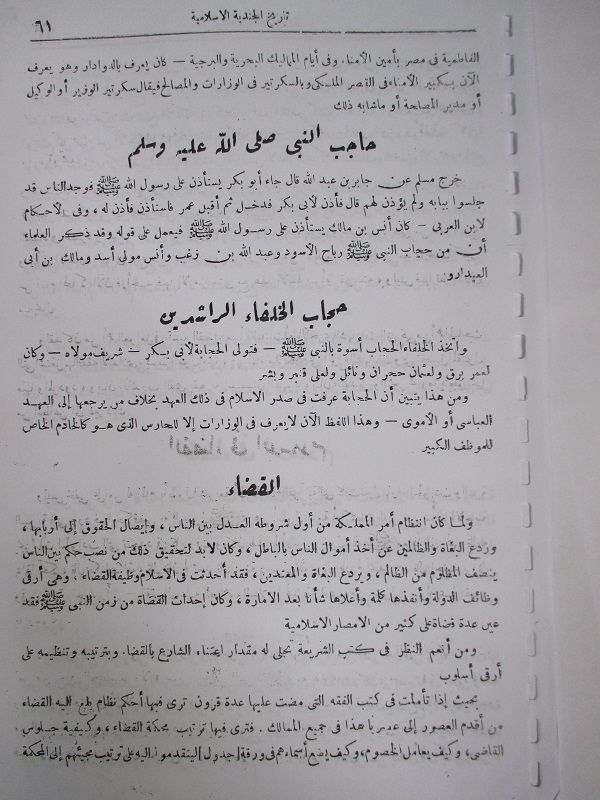 تاريخ الجندية الاسلامية
٦١
الفاطمية فى مصر بأمين الأمناء. وفى أيام المماليك البحرية والبرجية — كان يعرف بالدوادار وهو يعرف
الآن بكبير الأمناء فى القصر الملكى وبالسكرتير فى الوزارات والمصالح فيقال سكرتير الوزير أو الوكيل
أو مدير المصلحة أو ماشابه ذلك
حاجب النبى صلى الله عليه وسلم
خرج مسلم عن جابر بن عبد الله قال جاء أبو بكر يستأذن على رسول الله ﷺ فوجد الناس قد
جلسوا ببابه ولم يؤذن لهم قال فأذن لأبى بكر فدخل ثم أقبل عمر فاستأذن فأذن له ، وفى الأحكام
لابن العربى — كان أنس بن مالك يستأذن على رسول الله ﷺ فيعمل على قوله وقد ذكر العلماء
أن من حجاب النبى ﷺ رباح الأسود وعبد الله بن زغب وأنس مولى أسد ومالك بن أبى
العيدارو
حجاب الخلفاء الراشدين
واتخذ الخلفاء الحجاب أسوة بالنبى ﷺ — فتولى الحجابة لأبى بكر — شريف مولاه — وكان
لعمر يرق ولعثمان حجران ونائل ولعلى قنبر وبشر
ومن هذا يتبين أن الحجابة عرفت فى صدر الاسلام فى ذلك العهد بخلاف من يرجعها إلى العهد
العباسى أو الأموى — وهذا اللفظ الآن لايعرف فى الوزارات إلا للحارس الذى هو كالخادم الخاص
للموظف الكبير
القضاء
ولما كان انتظام أمر المملكة من أول شروطه العدل بين الناس ، وإيصال الحقوق إلى أربابها ،
وردع البغاة والظالمين عن أخذ أموال الناس بالباطل ، وكان لابد لتحقيق ذلك من نصب حكم بين الناس
ينصف المظلوم من الظالم ، ويردع البغاة والمعتدين ، فقد أحدثت فى الاسلام وظيفة القضاء . وهى أرقى
وظائف الدولة وأنفذها كلمة وأعلاها شأنا بعد الامارة ، وكان إحداث القضاة من زمن النبى ﷺ فقد
عين عدة قضاة على كثير من الامصار الاسلامية
ومن أنعم النظر فى كتب الشريعة تجلى له مقدار اعتناء الشارع بالقضاء. وبترتيبه وتنظيمه على
أرقى أسلوب
بحيث إذا تأملت فى كتب الفقه التى مضت عليها عدة قرون ترى فيها أحكم نظام بلغ اليه القضاء
من أقدم العصور إلى عصرنا هذا فى جميع الممالك . فترى فيها ترتيب محكمة القضاء ، وكيفية جلوس
القاضى ، وكيف يعامل الخصوم ، وكيف يضع أسماءهم فى ورقة [جدول] ليتقدموا اليه على ترتيب مجيئهم إلى المحكمة